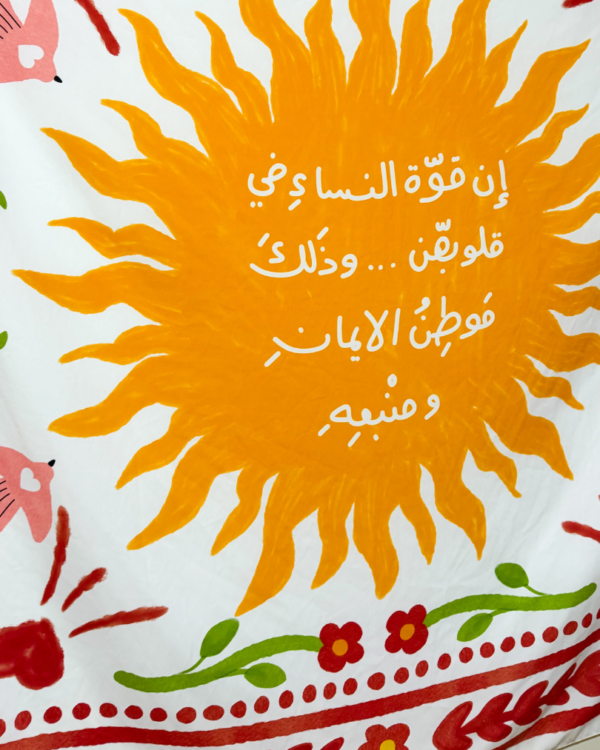 إن قوّة النساءِ في
قلوبهّن ... وذَلكَ
مَوطِنُ الايمانِ
ومنْبعهِ